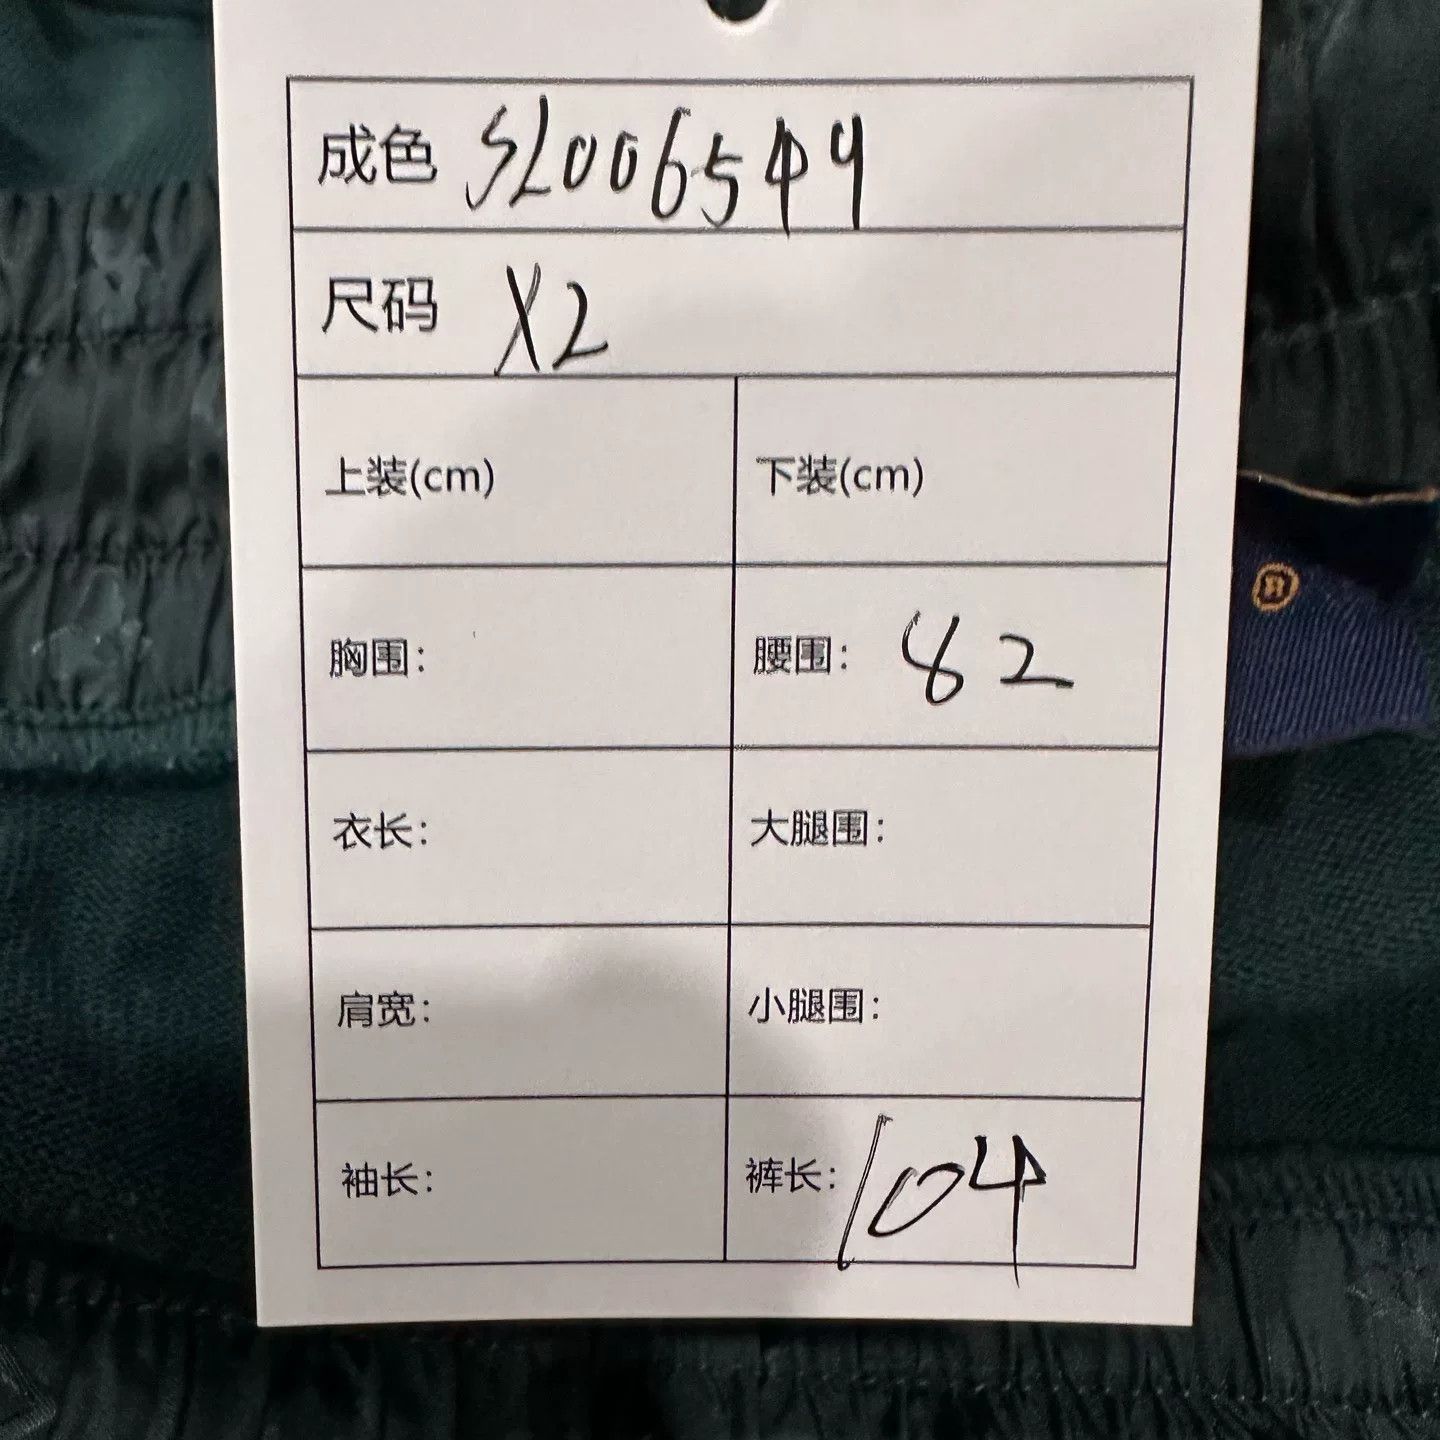 成色 SL006549
尺码 X2
上装(cm) 下装(cm)
胸围: 腰围: 82
衣长: 大腿围:
肩宽: 小腿围:
袖长: 裤长: 104